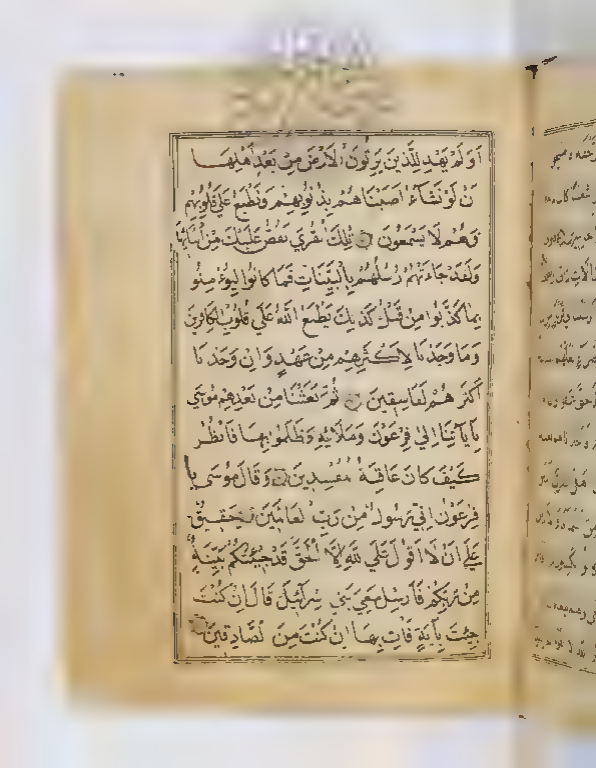 اَوَلَمْ يَهْدِ لِلَّذِينَ يَرِثُونَ الْاَرْضَ مِنْ بَعْدِ اَهْلِهَا
اَنْ لَوْ نَشَآءُ اَصَبْنَاهُمْ بِذُنُوبِهِمْ وَنَطْبَعُ عَلَى قُلُوبِهِمْ
فَهُمْ لَا يَسْمَعُونَ تِلْكَ الْقُرَى نَقُصُّ عَلَيْكَ مِنْ اَنْبَآئِهَا
وَلَقَدْ جَاءَتْهُمْ رُسُلُهُمْ بِالْبَيِّنَاتِ فَمَا كَانُوا لِيُؤْمِنُوا
بِمَا كَذَّبُوا مِنْ قَبْلُ كَذَلِكَ يَطْبَعُ اللَّهُ عَلَى قُلُوبِ الْكَافِرِينَ
وَمَا وَجَدْنَا لِاَكْثَرِهِمْ مِنْ عَهْدٍ وَاِنْ وَجَدْنَا
اَكْثَرَهُمْ لَفَاسِقِينَ ثُمَّ بَعَثْنَا مِنْ بَعْدِهِمْ مُوسَى
بِاٰيَاتِنَا اِلَى فِرْعَوْنَ وَمَلَائِهِ فَظَلَمُوا بِهَا فَانْظُرْ
كَيْفَ كَانَ عَاقِبَةُ الْمُفْسِدِينَ وَقَالَ مُوسَى يَا
فِرْعَوْنُ اِنِّي رَسُولٌ مِنْ رَبِّ الْعَالَمِينَ حَقِيقٌ
عَلَى اَنْ لَا اَقُولَ عَلَى اللَّهِ اِلَّا الْحَقَّ قَدْ جِئْتُكُمْ بِبَيِّنَةٍ
مِنْ رَبِّكُمْ فَاَرْسِلْ مَعِيَ بَنِي اِسْرَآئِيلَ قَالَ اِنْ كُنْتَ
جِئْتَ بِاٰيَةٍ فَاْتِ بِهَا اِنْ كُنْتَ مِنَ الصَّادِقِينَ